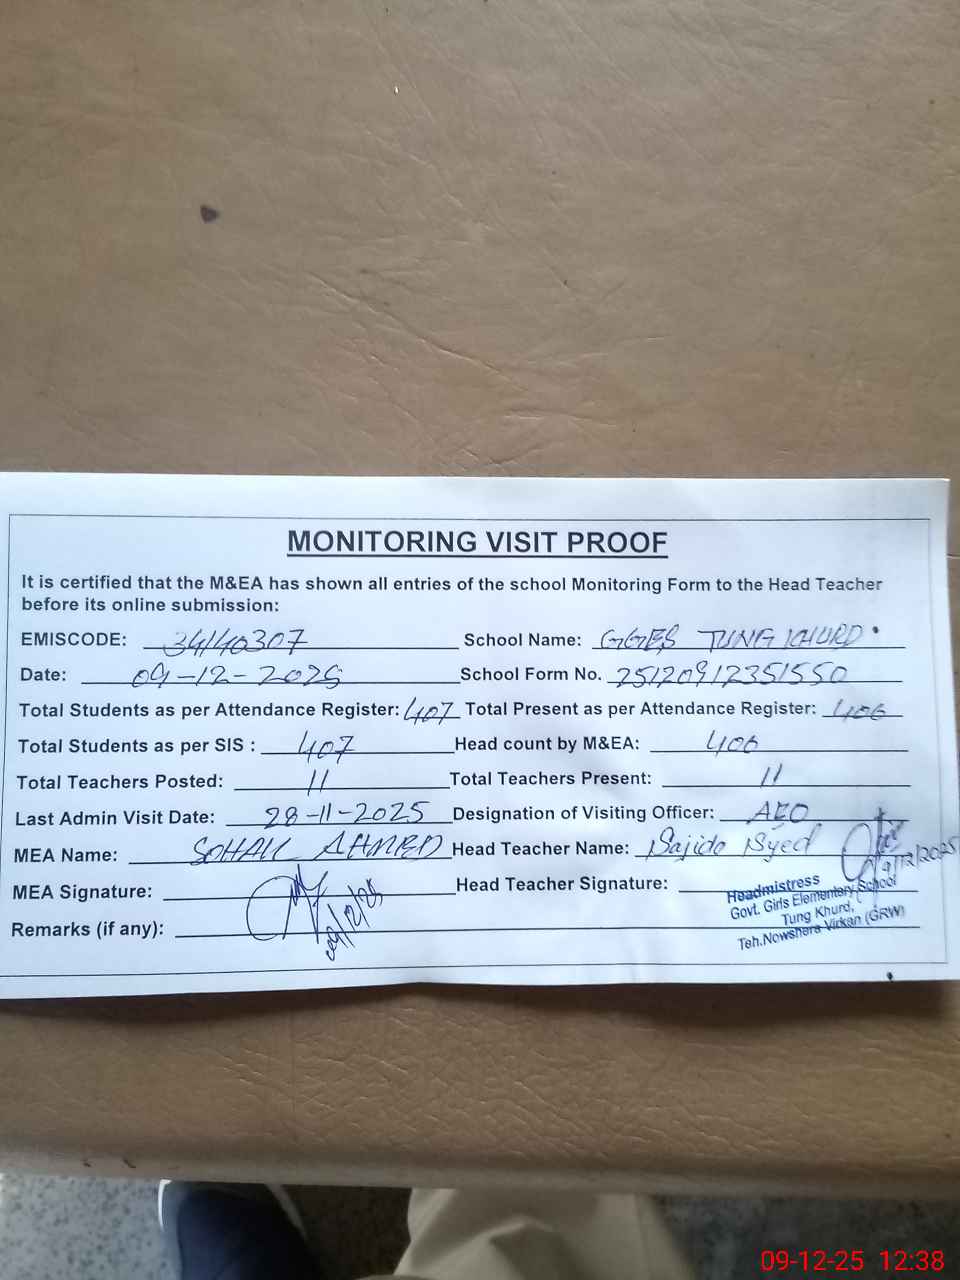 MONITORING VISIT PROOF
It is certified that the M&EA has shown all entries of the school Monitoring Form to the Head Teacher
before its online submission:
EMISCODE: 34140307 School Name: GGES TUNG KHURD
Date: 09-12-2025 School Form No. 25120912351550
Total Students as per Attendance Register: 407 Total Present as per Attendance Register: 406
Total Students as per SIS : 407 Head count by M&EA: 406
Total Teachers Posted: 11 Total Teachers Present: 11
Last Admin Visit Date: 28-11-2025 Designation of Visiting Officer: AEO
MEA Name: SOHAIL AHMED Head Teacher Name: Sajida Syed
9/12/2025
MEA Signature: Head Teacher Signature:
09/12/25
Headmistress
Govt. Girls Elementary School
Tung Khurd,
Teh.Nowshera Virkan (GRW)
Remarks (if any):
09-12-25 12:38